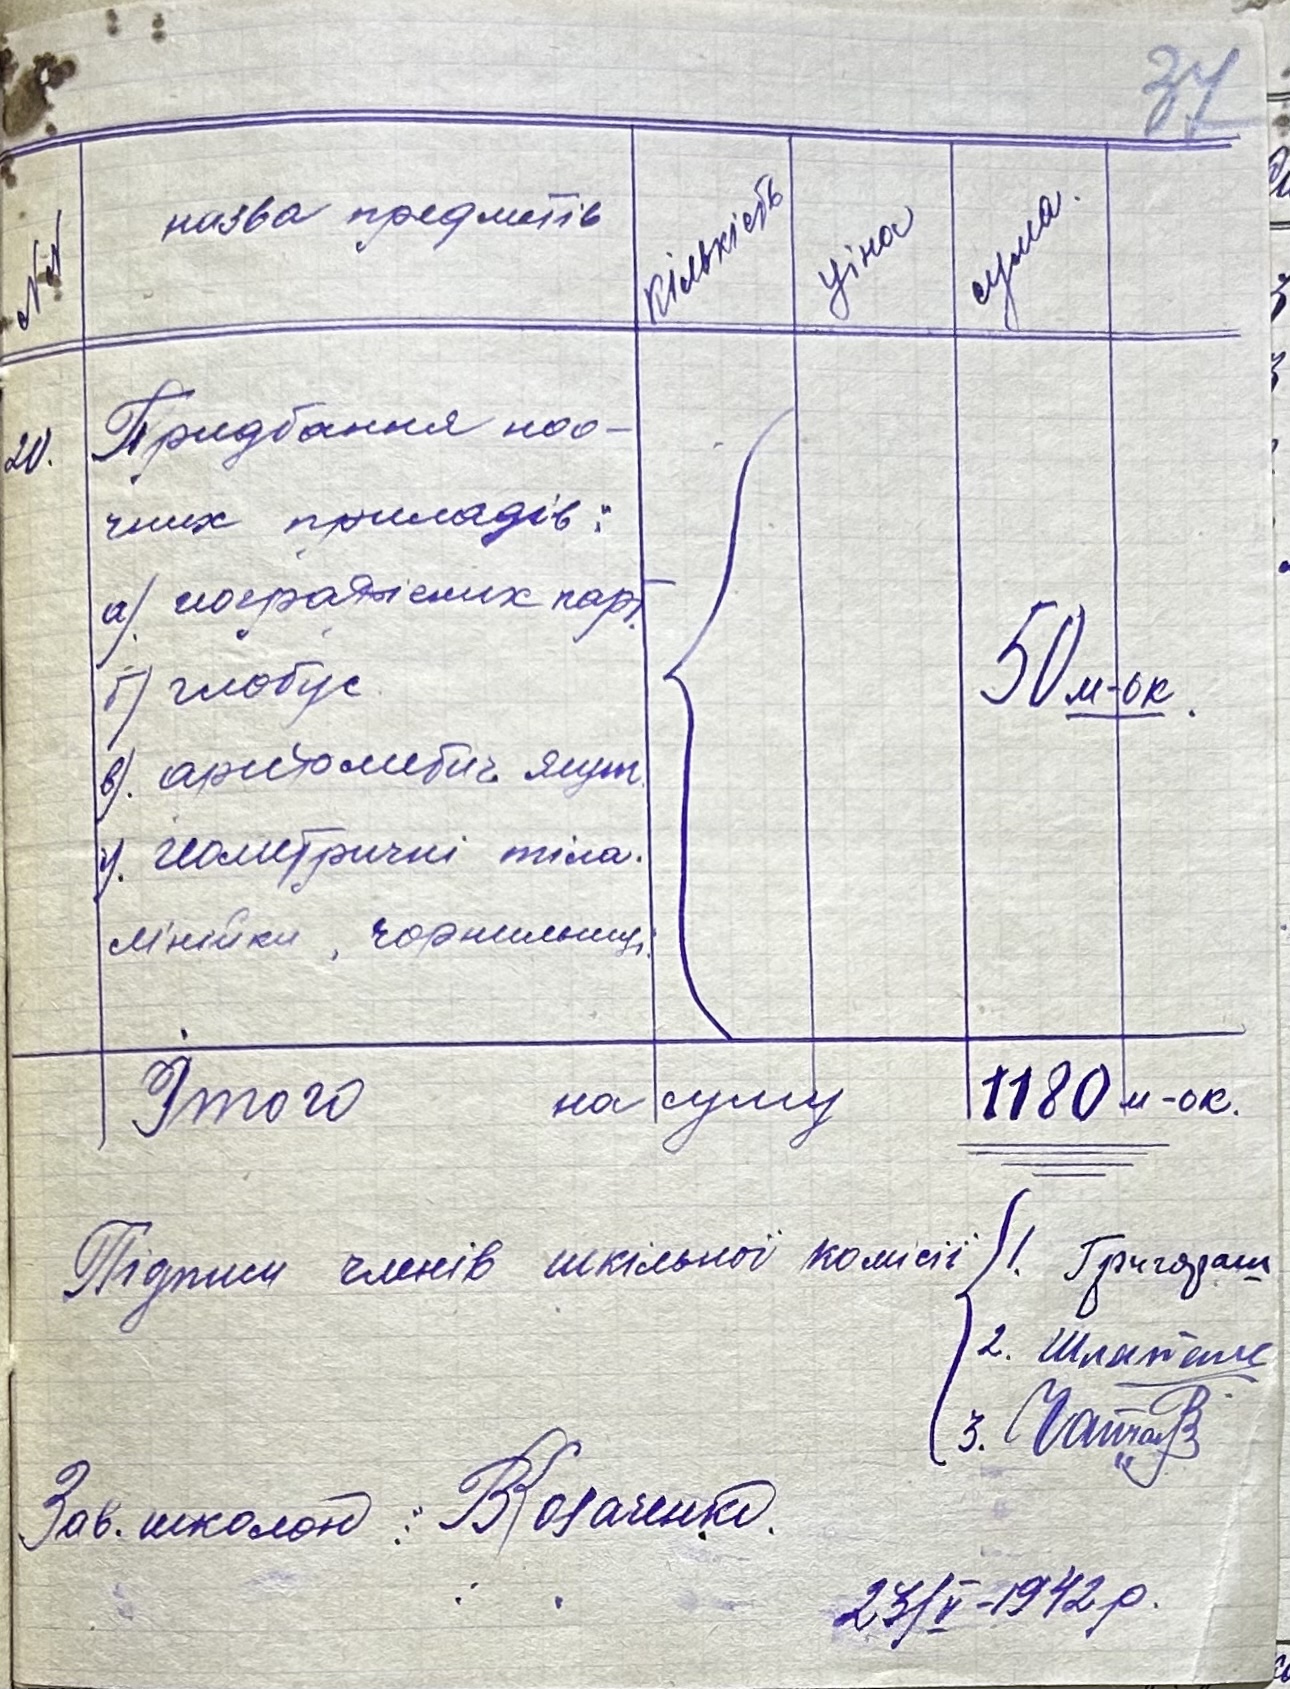 37
№№ назва предметів кількість ціна сума.
20. Придбання нао-
чних приладів:
а). географічних карт.
б) глобус
в). аритметич. ящик.
г). геометричні тіла.
лінійки, чорнильниці.
50 м-ок.
Ітого на суму 1180 м-ок.
Підписи членів шкільної комісії 1.
2.
3.
Зав. школою: ВКозаченко.
23/V-1942 р.